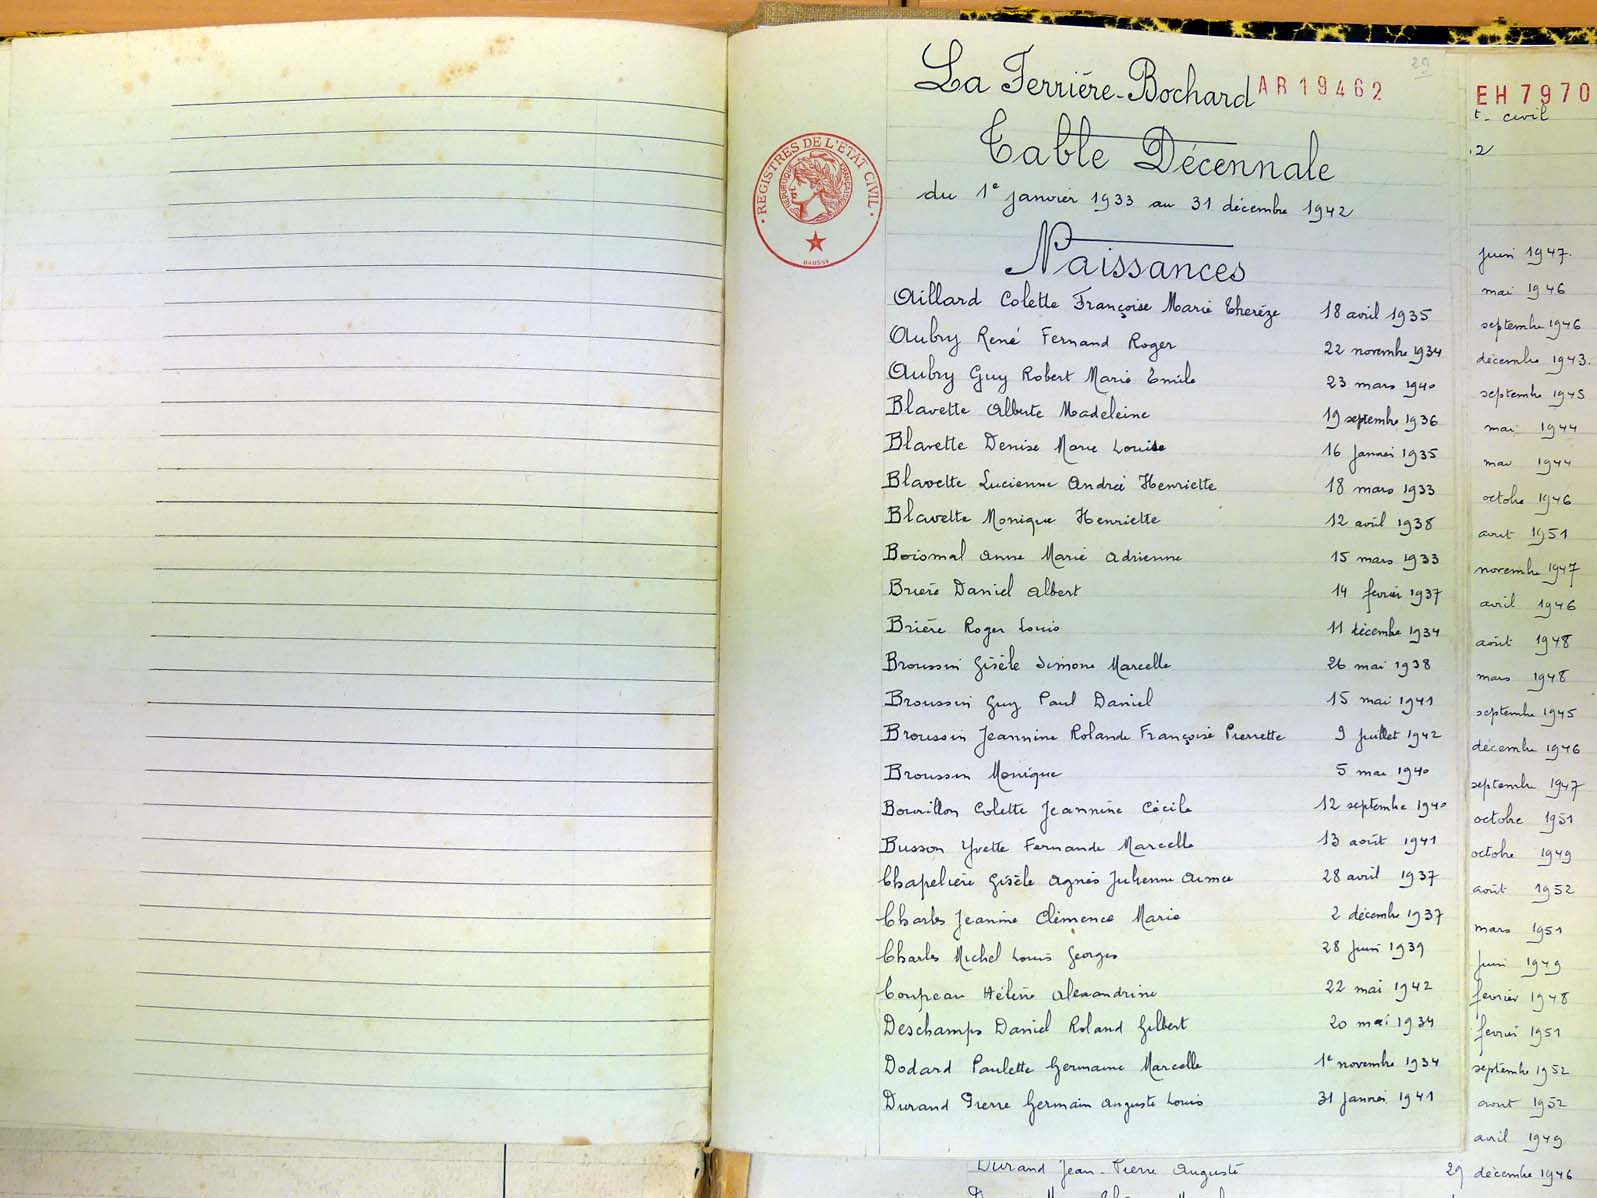 29
La Ferrière-Bochard AR19462
Table Décennale
du 1e janvier 1933 au 31 décembre 1942
REGISTRES DE L'ETAT CIVIL
REPUBLIQUE FRANÇAISE
Naissances
Aillard Colette Françoise Marie Therèze 18 avril 1935
Aubry René Fernand Roger 22 novembre 1934
Aubry Guy Robert Marie Emile 23 mars 1940
Blavette Alberte Madeleine 19 septembre 1936
Blavette Denise Marie Louise 16 janvier 1935
Blavette Lucienne Andrée Henriette 18 mars 1933
Blavette Monique Henriette 12 avril 1938
Boismal Anne Marie Adrienne 15 mars 1933
Brière Daniel Albert 14 février 1937
Brière Roger Louis 11 décembre 1934
Broussin Gisèle Simone Marcelle 26 mai 1938
Broussin Guy Paul Daniel 15 mai 1941
Broussin Jeannine Rolande Françoise Pierrette 9 juillet 1942
Broussin Monique 5 mai 1940
Bourillon Colette Jeannine Cécile 12 septembre 1940
Busson Yvette Fernande Marcelle 13 août 1941
Chapelière Gisèle Agnès Julienne Aimée 28 avril 1937
Charles Jeanine Clémence Marie 2 décembre 1937
Charles Michel Louis Georges 28 juin 1939
Coupeau Hélène Alexandrine 22 mai 1942
Deschamps Daniel Roland Gilbert 20 mai 1934
Dodard Paulette Germaine Marcelle 1e novembre 1934
Durand Pierre Germain Auguste Louis 31 janvier 1941
EH7970
t- civil
2
juin 1947.
mai 1946
septembre 1946
décembre 1943.
septembre 1945
mai 1944
mai 1944
octobre 1946
aout 1951
novembre 1947
avril 1946
août 1948
mars 1948
septembre 1945
décembre 1946
septembre 1947
octobre 1951
octobre 1949
août 1952
mars 1951
juin 1949
février 1948
février 1951
septembre 1952
aout 1952
avril 1949
Durand Jean-Pierre Auguste 29 décembre 1946